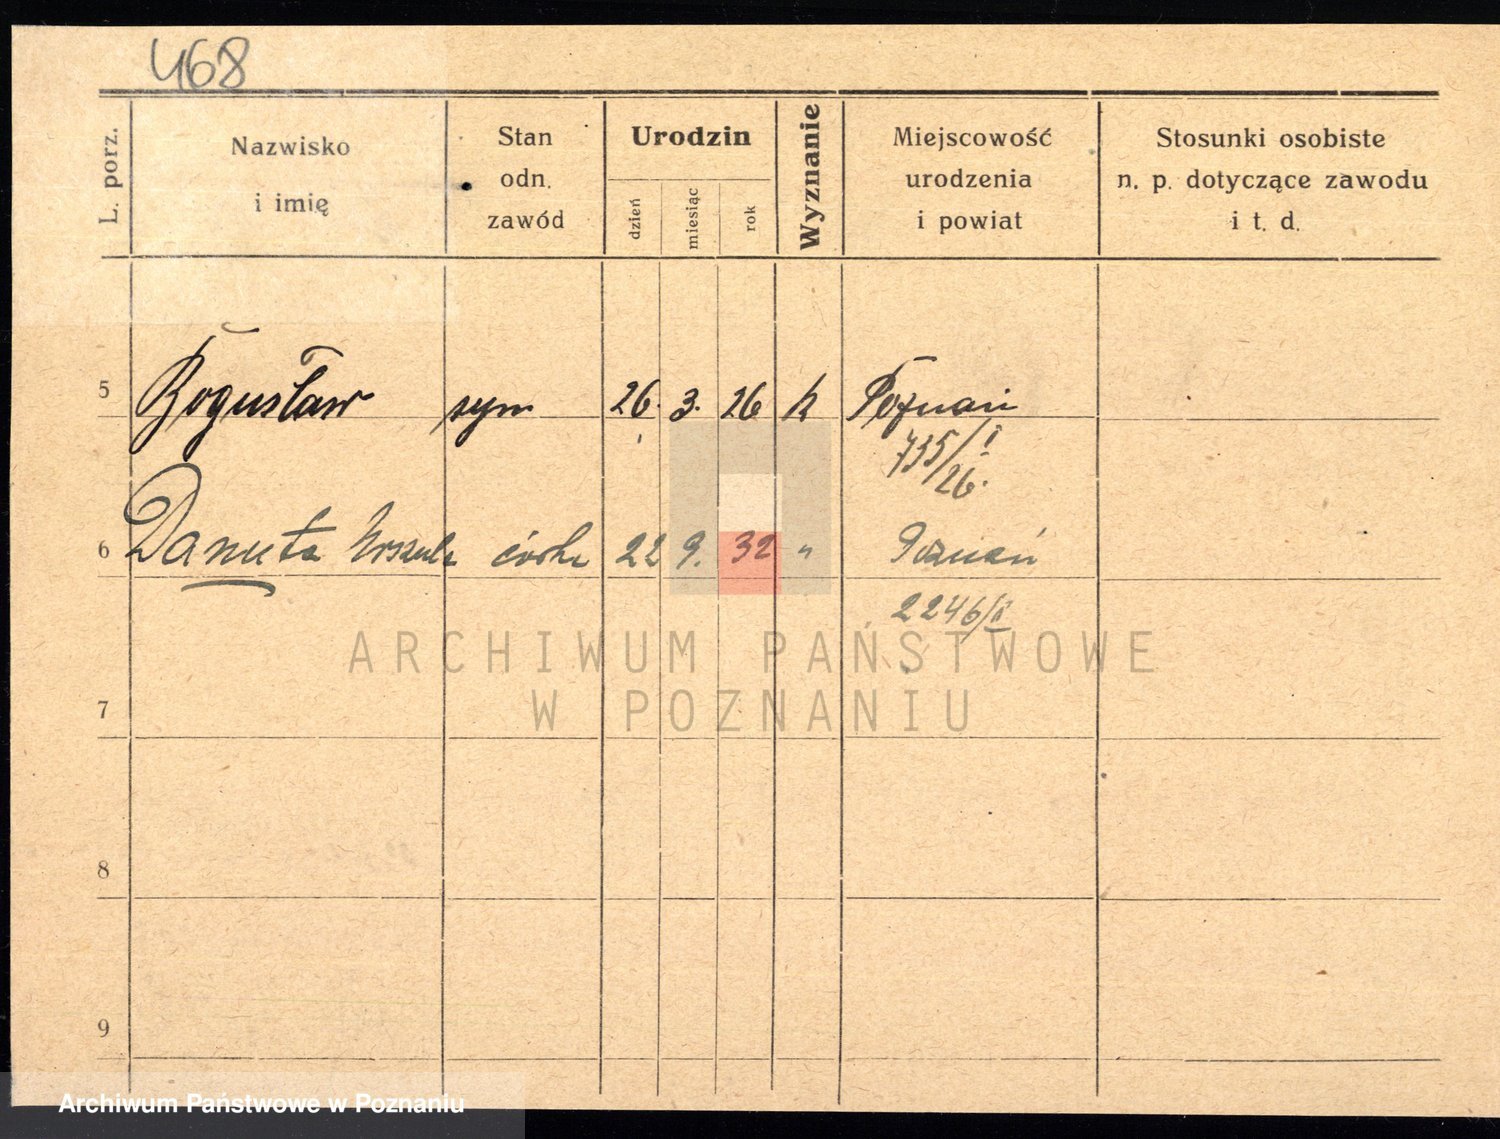 468
L. porz.
Nazwisko
i imię
Stan
odn.
zawód
Urodzin
dzień
miesiąc
rok
Wyznanie
Miejscowość
urodzenia
i powiat
Stosunki osobiste
n. p. dotyczące zawodu
i t. d.
5 Bogusław syn 26. 3. 26 k Poznań
735/I
26.
6 Danuta Urszula córka 22 9. 32 " Poznań
2246/II
7
8
9
ARCHIWUM PAŃSTWOWE
W POZNANIU
Archiwum Państwowe w Poznaniu